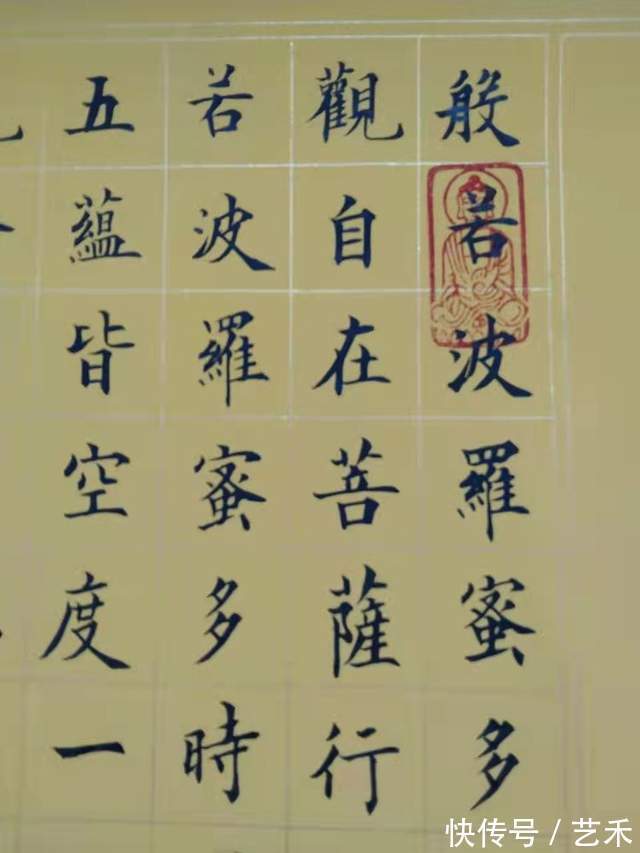 般若波羅蜜多
觀自在菩薩行
若波羅蜜多時
五蘊皆空度一
快传号／艺禾